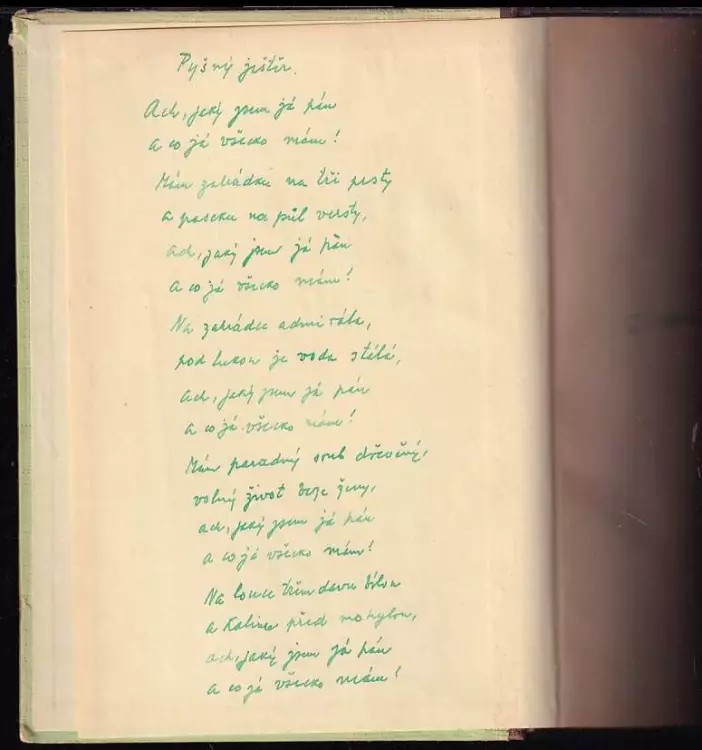 Pyšný ještěr.
Ach, jaký jsem já pán
a co já všecko mám!
Mám zahrádku na tři prsty
a paseku na půl versty,
ach, jaký jsem já pán
a co já všecko mám!
Na zahrádce admirála,
pod lukou je voda stálá,
ach, jaký jsem já pán
a co já všecko mám!
Mám parádný srub dřevěný,
volný život beze ženy,
ach, jaký jsem já pán
a co já všecko mám!
Na louce třímdavu bílou
a Kalinu před mohylou,
ach, jaký jsem já pán
a co já všecko mám!